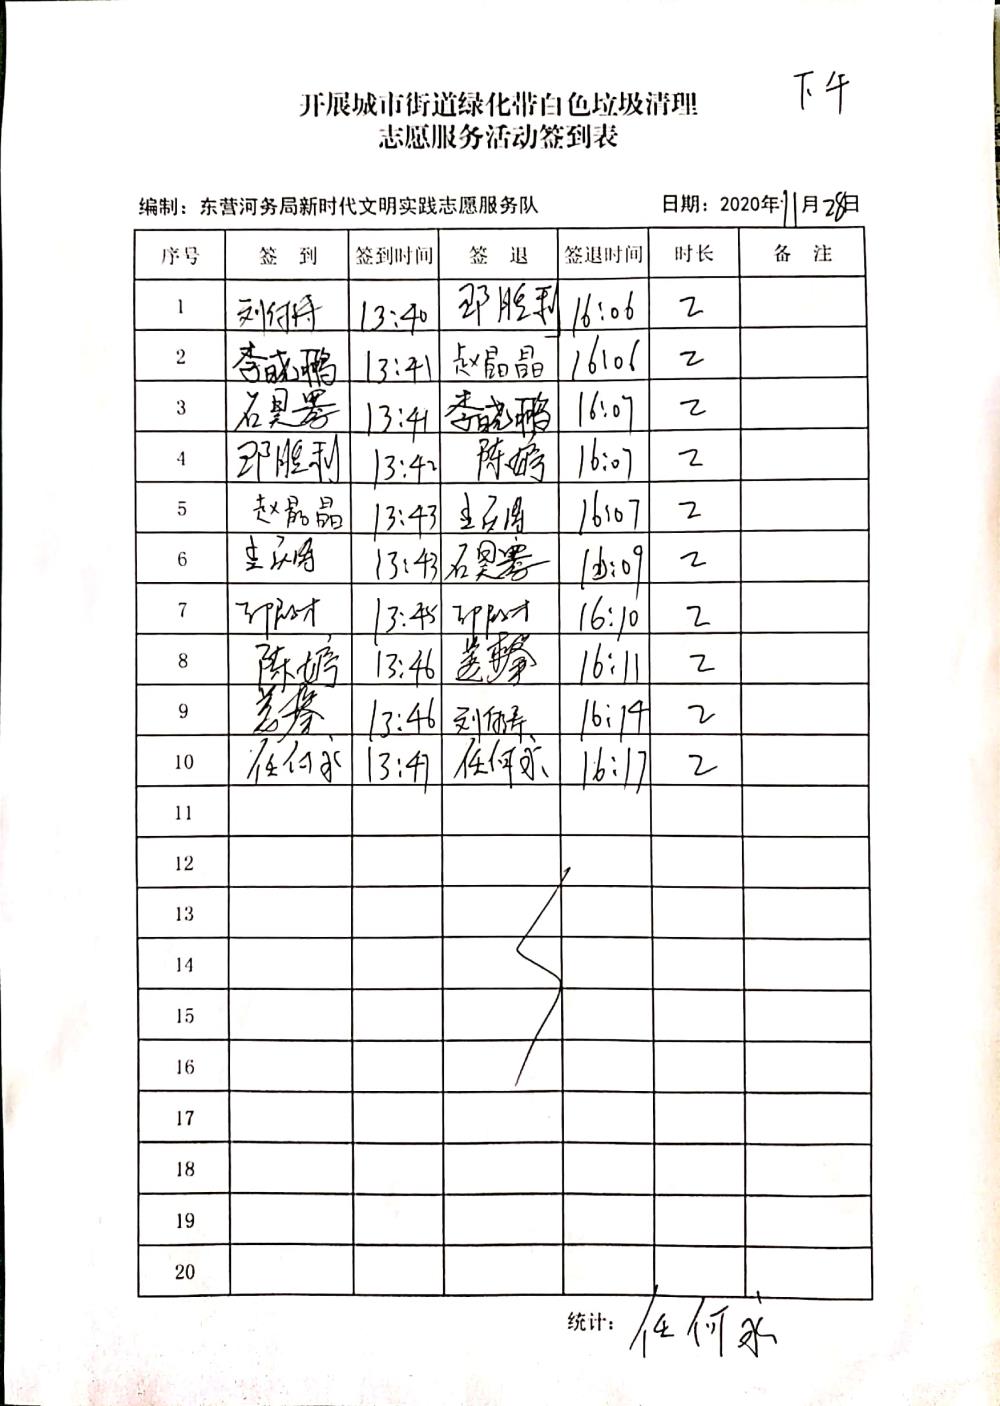 下午
开展城市街道绿化带白色垃圾清理
志愿服务活动签到表
编制：东营河务局新时代文明实践志愿服务队 日期：2020年11月28日
序号 签 到 签到时间 签 退 签退时间 时长 备 注
1 13:40 邓胜利 16:06 2
2 李晓鹏 13:41 赵晶晶 16:06 2
3 石昊 13:41 李晓鹏 16:07 2
4 邓胜利 13:42 陈婷 16:07 2
5 赵晶晶 13:43 16:07 2
6 13:43 石昊 16:09 2
7 13:45 16:10 2
8 陈婷 13:46 16:11 2
9 13:46 16:14 2
10 任何永 13:47 任何永 16:17 2
11
12
13
14
15
16
17
18
19
20
统计：任何永